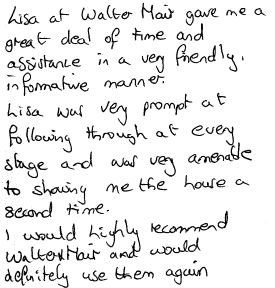 Lisa at Walter Mair gave me a
great deal of time and
assistance in a very friendly,
informative manner.
Lisa was very prompt at
following through at every
stage and was very amenable
to showing me the house a
second time.
I would highly recommend
Walter Mair and would
definitely use them again